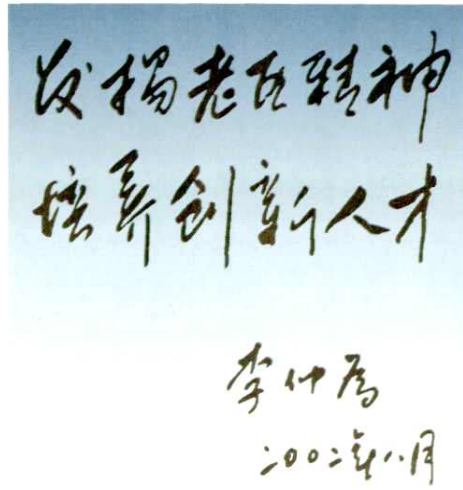 发扬老区精神
培养创新人才
李仲为
二00二年八月